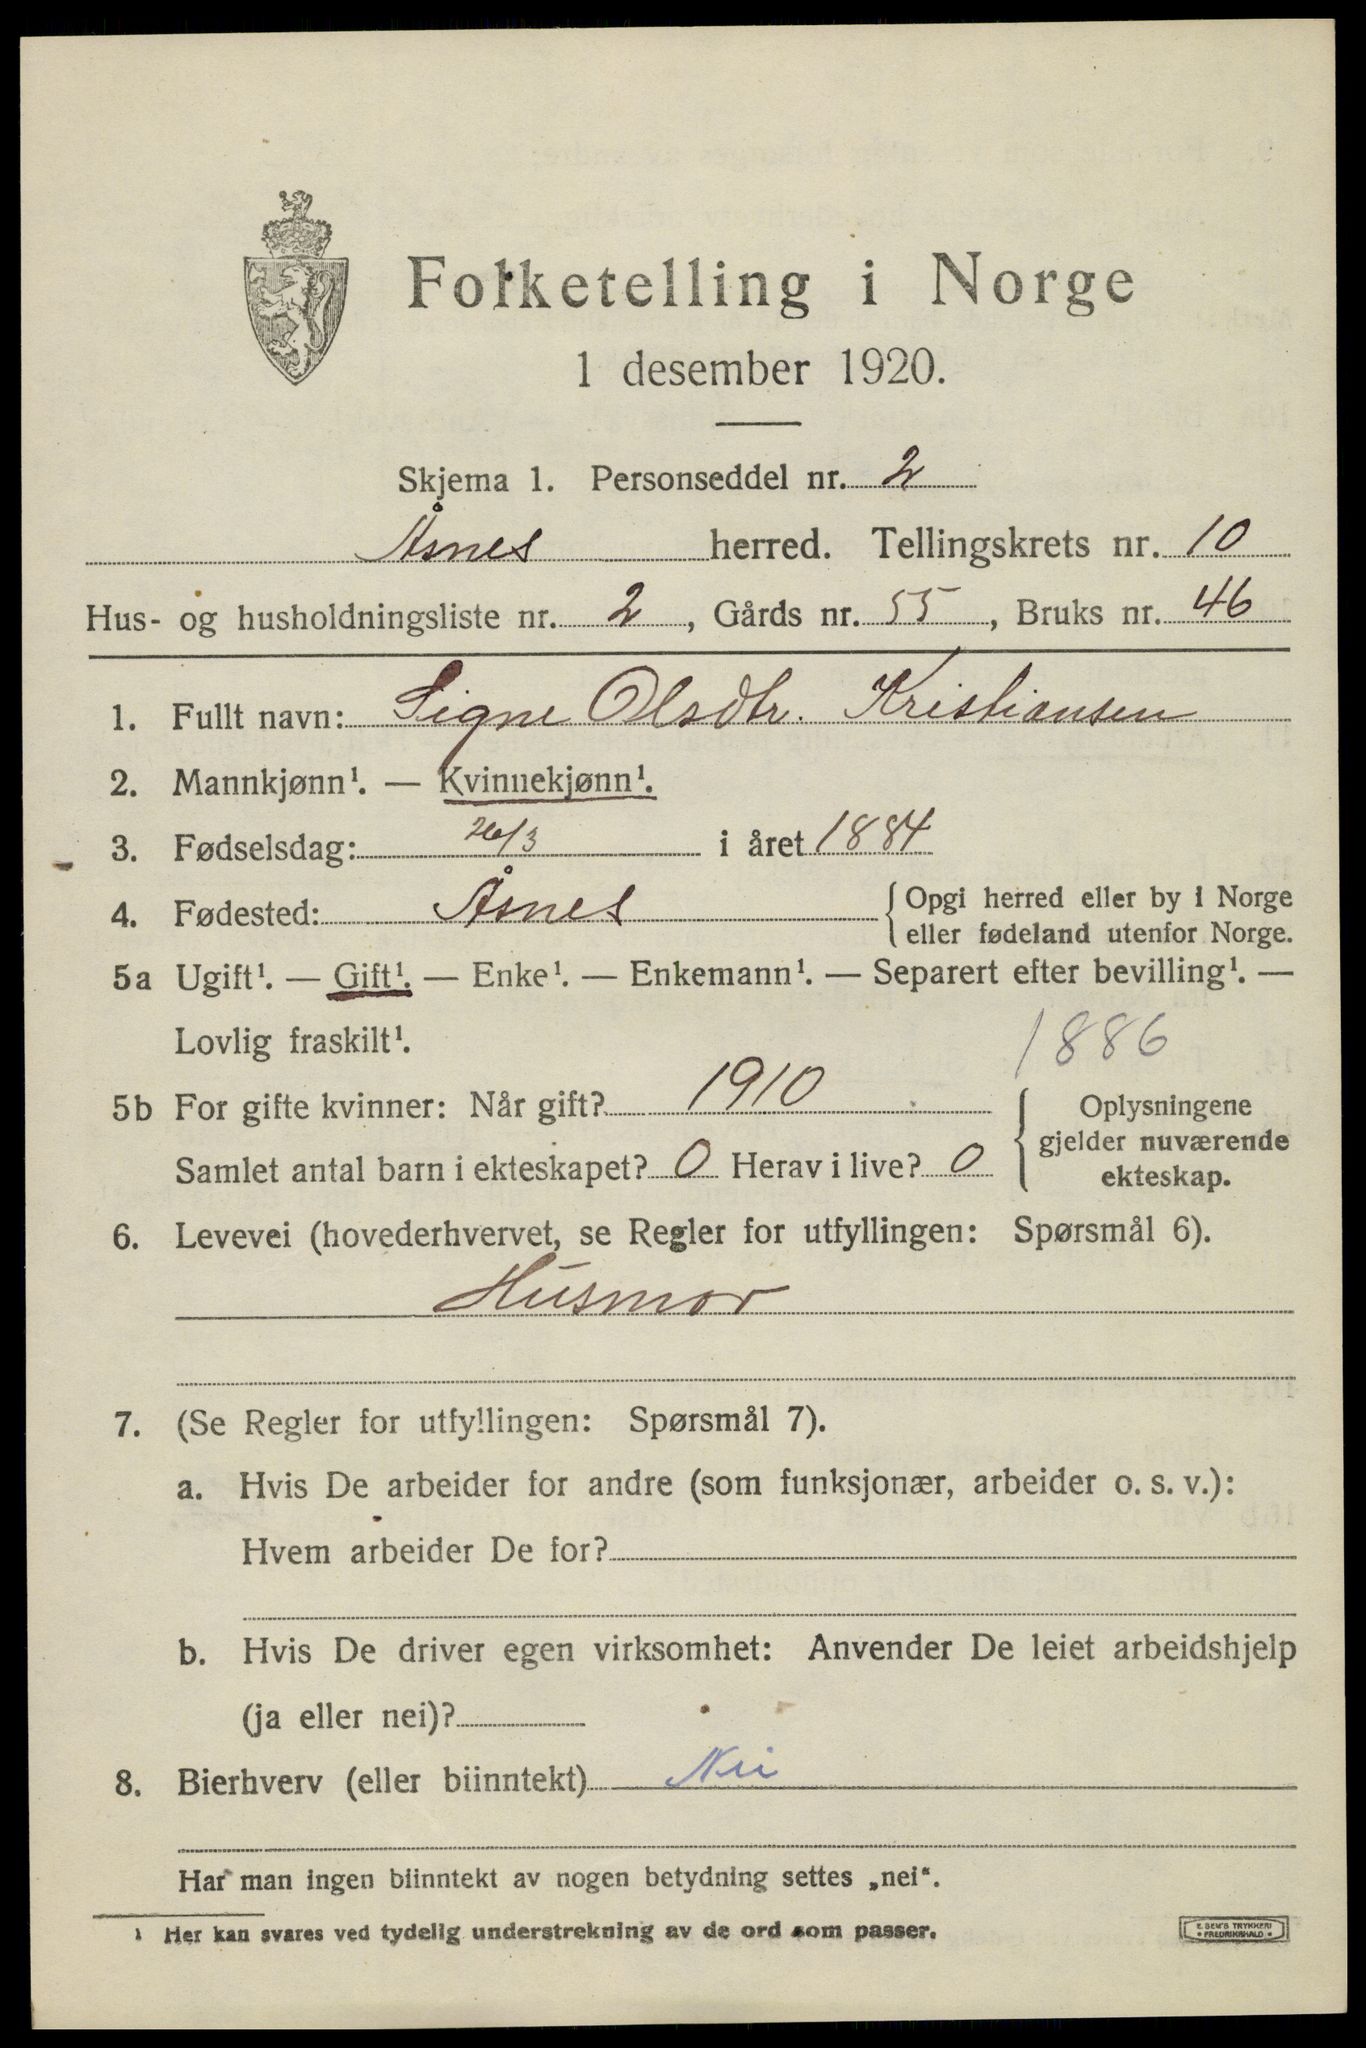 Folketelling i Norge
1 desember 1920.
Skjema 1. Personseddel nr. 2
Åsnes herred. Tellingskrets nr. 10
Hus- og husholdningsliste nr. 2, Gårds nr. 55, Bruks nr. 46
1. Fullt navn: Signe Olsdtr. Kristiansen
2. Mannkjønn¹. — Kvinnekjønn¹.
3. Fødselsdag: 26/3 i året 1884
4. Fødested: Åsnes { Opgi herred eller by i Norge
eller fødeland utenfor Norge.
5a Ugift¹. — Gift¹. — Enke¹. — Enkemann¹. — Separert efter bevilling¹. —
Lovlig fraskilt¹.
1886
5b For gifte kvinner: Når gift? 1910
Samlet antal barn i ekteskapet? 0 Herav i live? 0
{ Oplysningene
gjelder nuværende
ekteskap.
6. Levevei (hovederhvervet, se Regler for utfyllingen: Spørsmål 6).
Husmor
7. (Se Regler for utfyllingen: Spørsmål 7).
a. Hvis De arbeider for andre (som funksjonær, arbeider o. s. v.):
Hvem arbeider De for?
b. Hvis De driver egen virksomhet: Anvender De leiet arbeidshjelp
(ja eller nei)?
8. Bierhverv (eller biinntekt) Nei
Har man ingen biinntekt av nogen betydning settes „nei“.
¹ Her kan svares ved tydelig understrekning av de ord som passer.
E. SEM'S TRYKKERI
* FREDRIKSHALD *